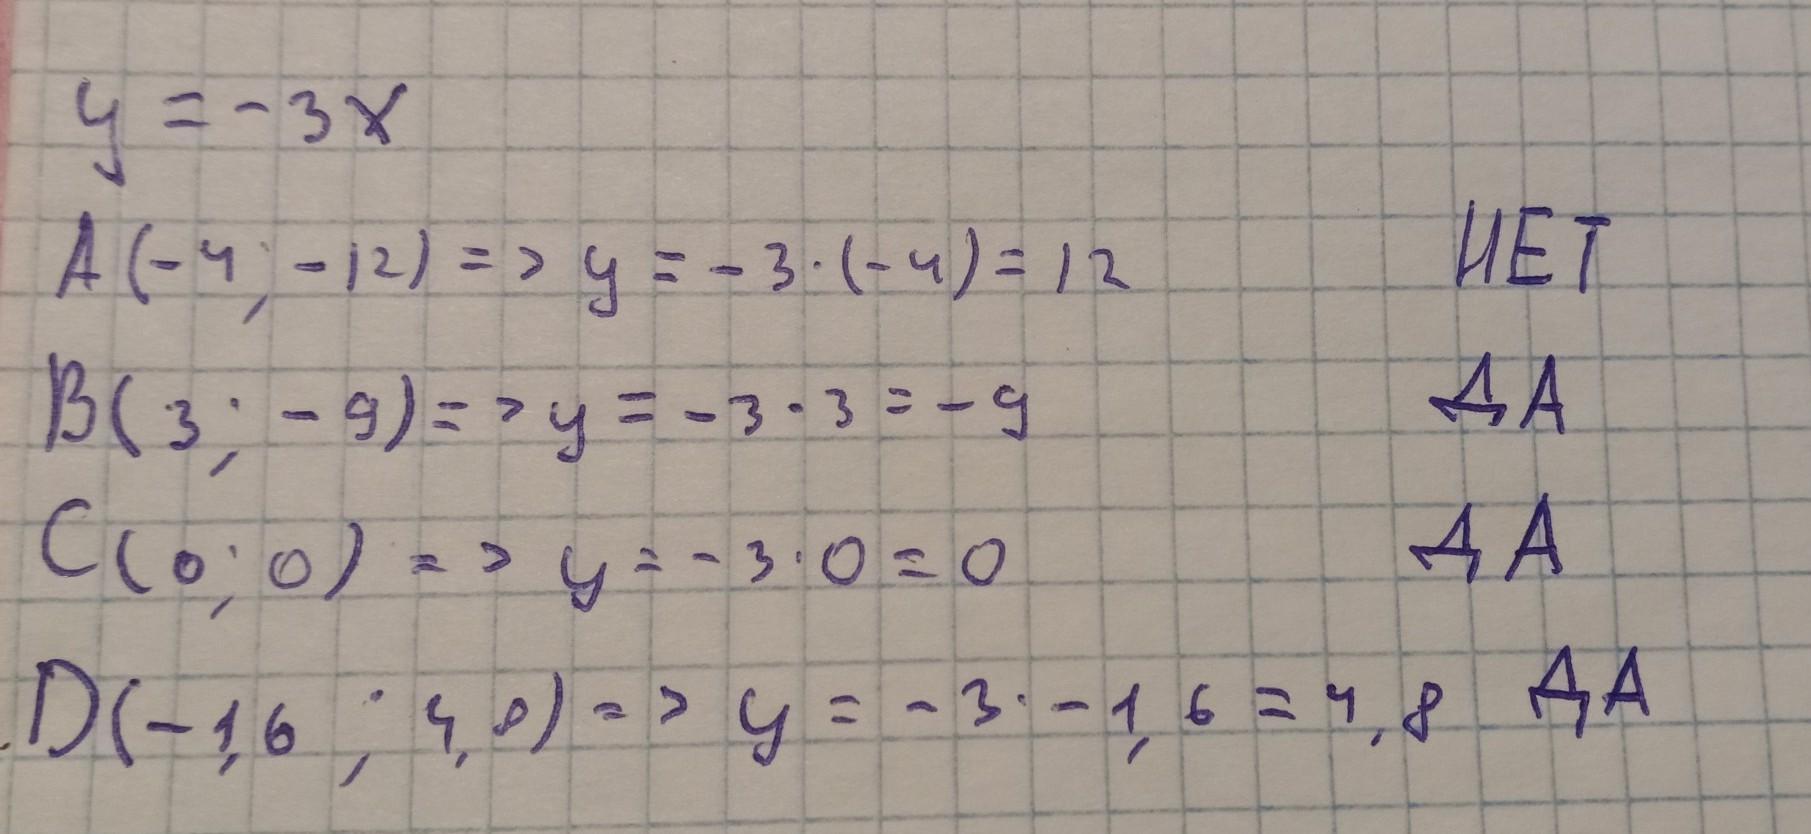 y = -3x
A(-4; -12) => y = -3·(-4) = 12 НЕТ
B(3; -9) => y = -3·3 = -9 ДА
C(0; 0) => y = -3·0 = 0 ДА
D(-1,6; 4,8) => y = -3·-1,6 = 4,8 ДА